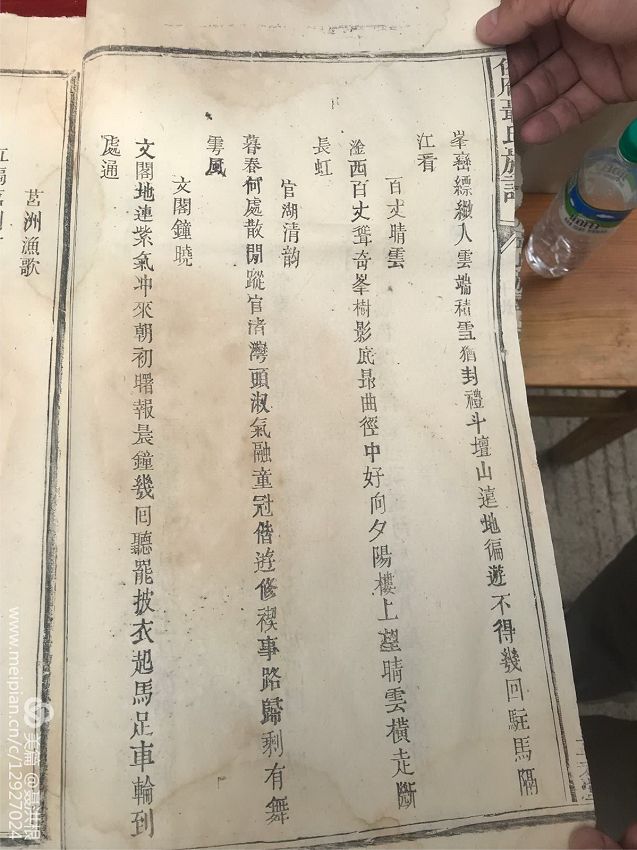 峯巒縹緲人雲端積雪猶封禮斗壇山遠地偏遊不得幾回駐馬隔
江看
百丈晴雲
淦西百丈聳奇峯樹影底最曲徑中好向夕陽樓上望晴雲橫走斷
長虹
官湖清韵
暮春何處散閒蹤官渚灣頭淑氣融童冠偕遊修禊事路歸剩有舞
雩風
文閣鐘曉
文閣地連紫氣冲來朝初曙報晨鐘幾回聽罷披衣起馬足車輪到
處通
莒洲漁歌
www.meipian.cn/c/12927024
美篇